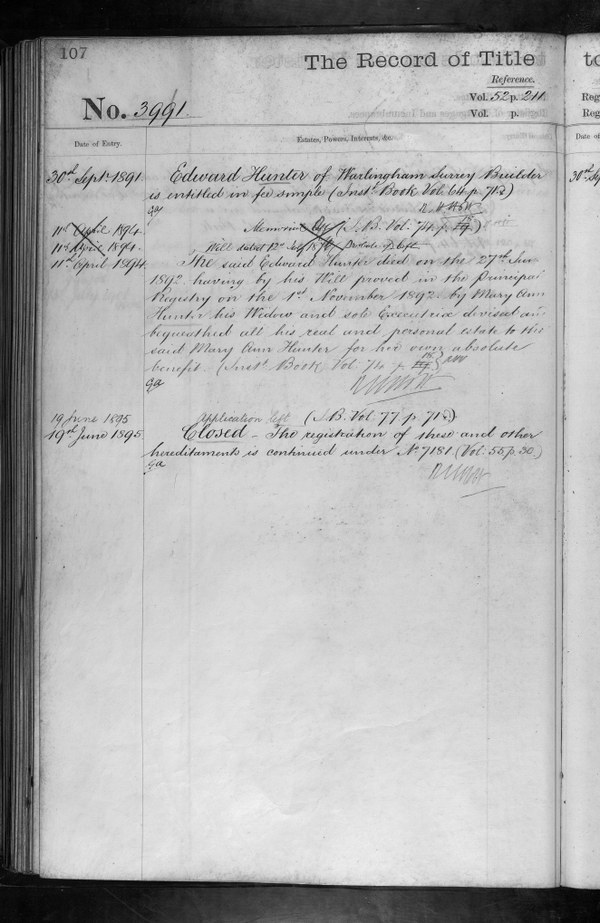 107
The Record of Title
Reference.
No. 3991.
Vol. 52 p. 211.
Vol. p.
Date of Entry.
Estates, Powers, Interests, &c.
30th Sept. 1891
Edward Hunter of Warlingham Surrey Builder
is entitled in fee simple (Inst. Book Vol. 64 p. 71
11th April 1894.
(I.B. Vol. 74 p.
11th April 1894.
Will dated 12
11th April 1894.
The said Edward Hunter died on the 27th Jan
1892 having by his Will proved in the Principal
Registry on the 1st November 1892 by Mary Ann
Hunter his Widow and sole Executrix devised an
bequeathed all his real and personal estate to the
said Mary Ann Hunter for her own absolute
benefit. (Inst. Book Vol. p.
19 June 1895
Application left (I.B. Vol. 77. p. 71
19th June 1895
Closed - The registration of these and other
hereditaments is continued under No. 7181 (Vol. 55 p. 30.)
to
Reg
Reg
Date of
30th